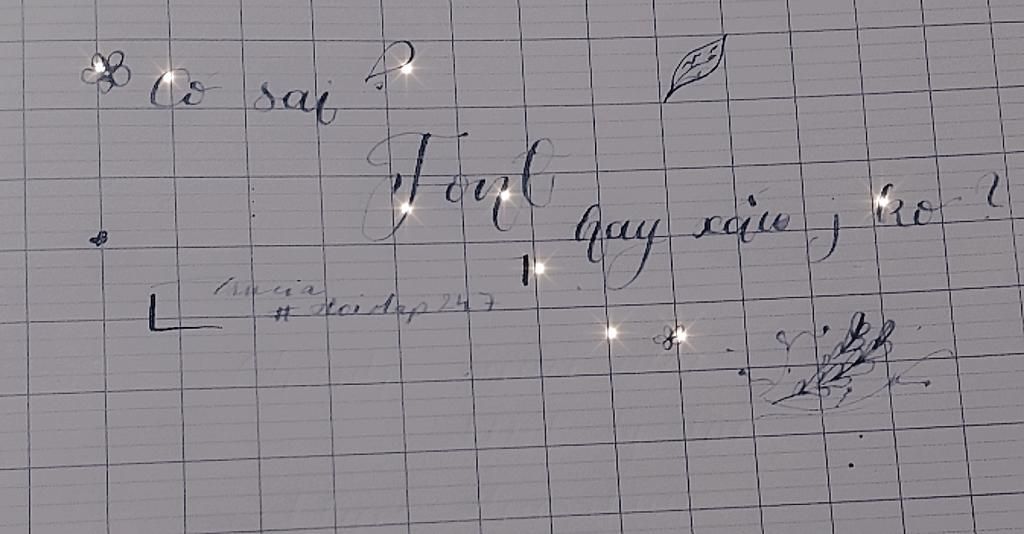 Có sai ?
Font
hay xấu , ko ?
# Hoidap247